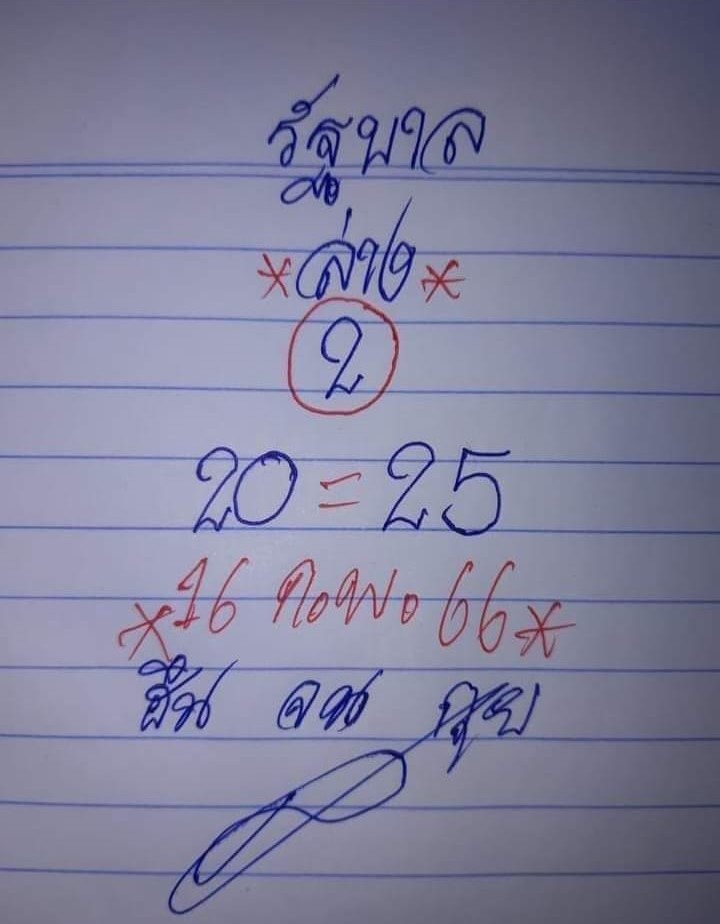 รัฐบาล
*ล่าง*
2
20 = 25
*16 ก.พ. 66*
จน